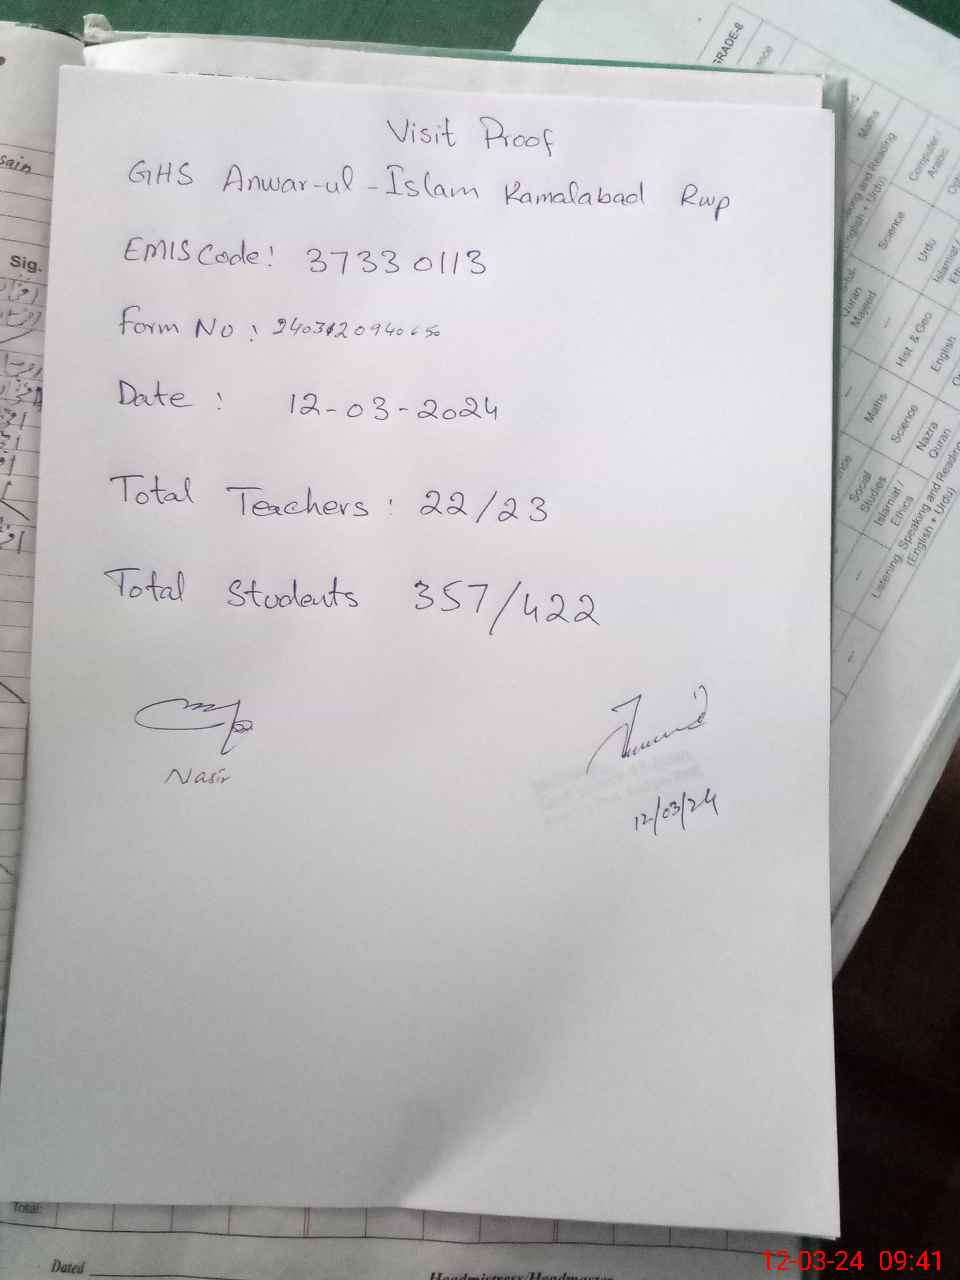 Visit Proof
GHS Anwar-ul-Islam Kamalabad Rwp
EMIS Code: 37330113
Form No:
Date: 12-03-2024
Total Teachers: 22/23
Total Students 357/422
Nasir
12/03/24
Sig.
GRADE-8
Maths
Computer/
Arabic
Science
Urdu
Islamiat/
Hist. & Geo
English
Maths
Science
Nazra
Quran
Social
Studies
Islamiat /
Ethics
Listening, Speaking and Reading
(English + Urdu)
Total:
Dated
Headmistress/Headmaster
12-03-24 09:41